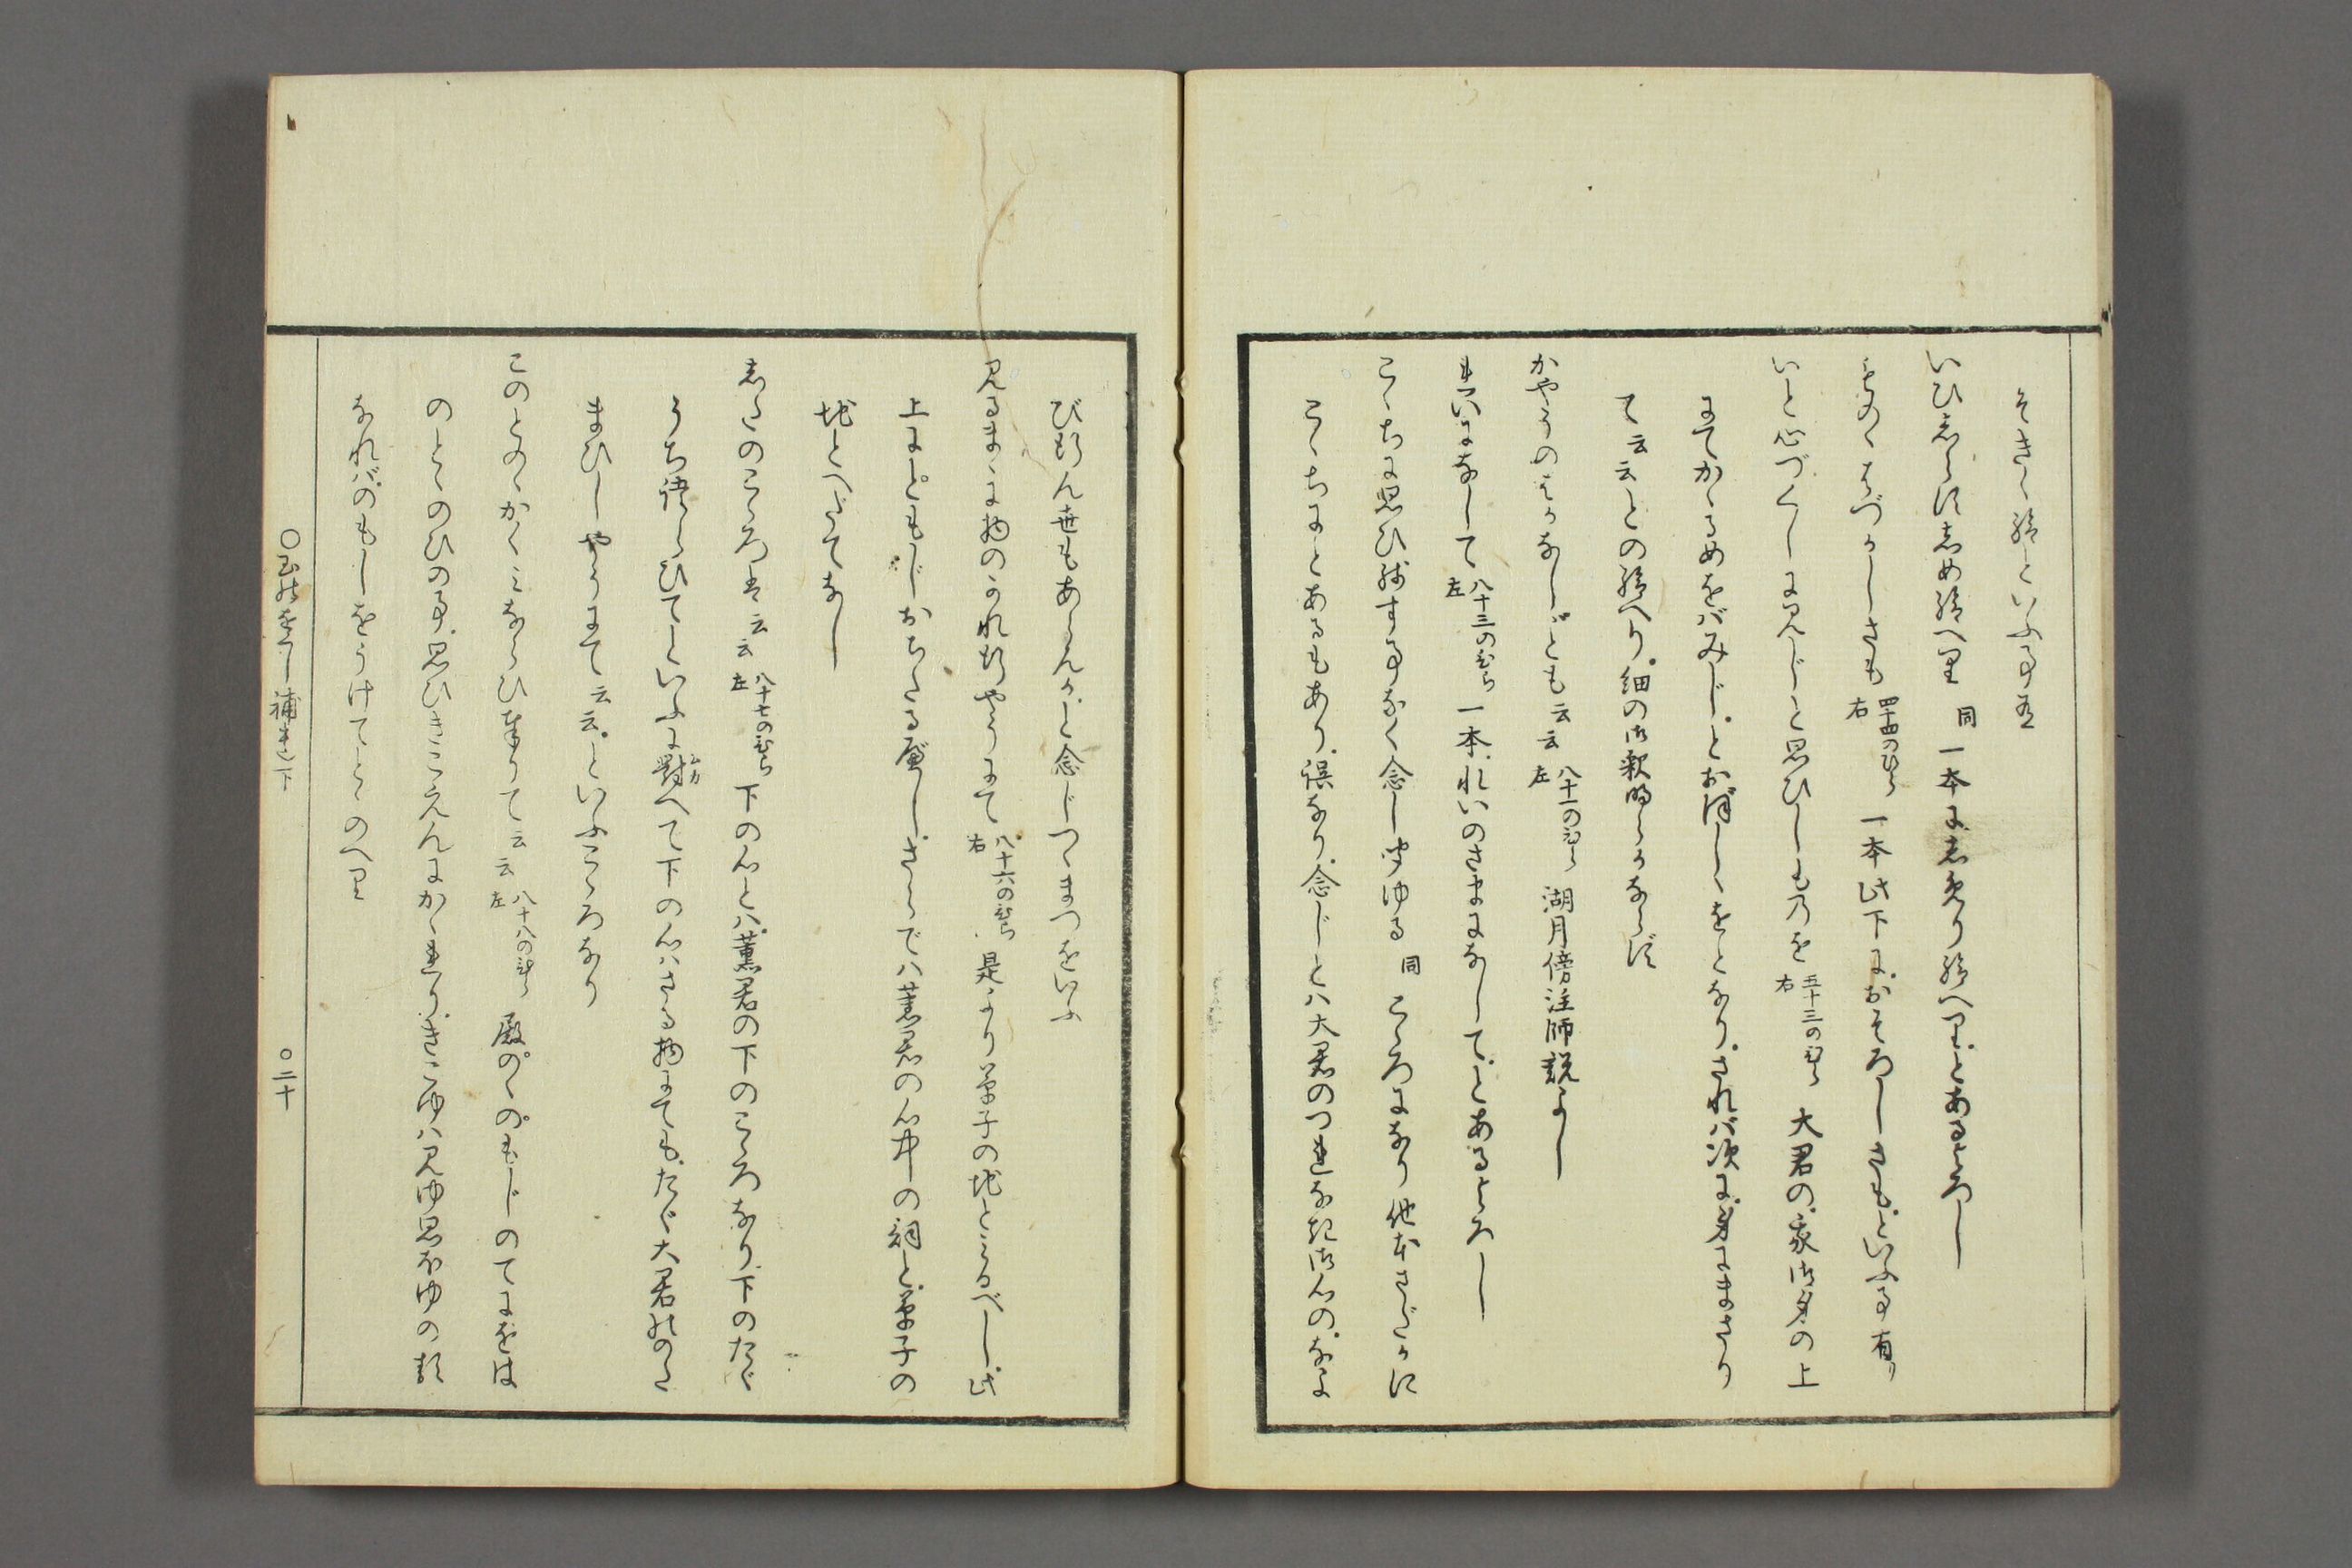 そきゝ給といふ事有
いひしらせしめ給へる 同 一本にしたり給へる、とあるよろし
ものゝはづかしさも 四十四のひら右 一本此下に、おそろしきも、といふ事有り
いと心づくしに見じと思ひしものを 五十三のひら右 大君の、我御身の上
にてかゝるめをバみじ、とおぼしゝをとなり、されバ次に、身にまさり
て云云との給へり、細の御釈明らかならず
かやうのはかなしごとも云云 八十一のひら左 湖月傍注師説よし
れいになして 八十三のひら左 一本、れいのさまになして、とあるよろし
こゝちに思ひ残す事なく念し聞ゆる 同 こゝろになり他本さだかに
こゝちにとあるもあり、誤なり、念じとハ大君のつれなき御心の、なよ
び給ん世もあらんかと念じつゝまつをいふ
見るまゝに物のかれ行やうにて 八十六のひら右 是より草子の地とみるべし、此
上にともじおちたる歟し、さらでハ薫君の心中の詞と、草子の
地とへだてなし
したのこゝろは云云 八十七のひら左 下の心とハ、薫君の下のこゝろなり、下のたゞ
うち語らひてといふに対へて下の心ハさる物にても、たゞ大君のゝた
まひしやうにて云云、といふこゝろなり
このとのゝかくみならひ奉りて云云 八十八のひら左 殿のゝのもじのてにをは
のとゝのひの事、思ひきこえんにかゝれり、きこゆハ見ゆ思ほゆの類
なれバのもしをうけてとゝのへり
○玉のをくし補遺下 ○二十